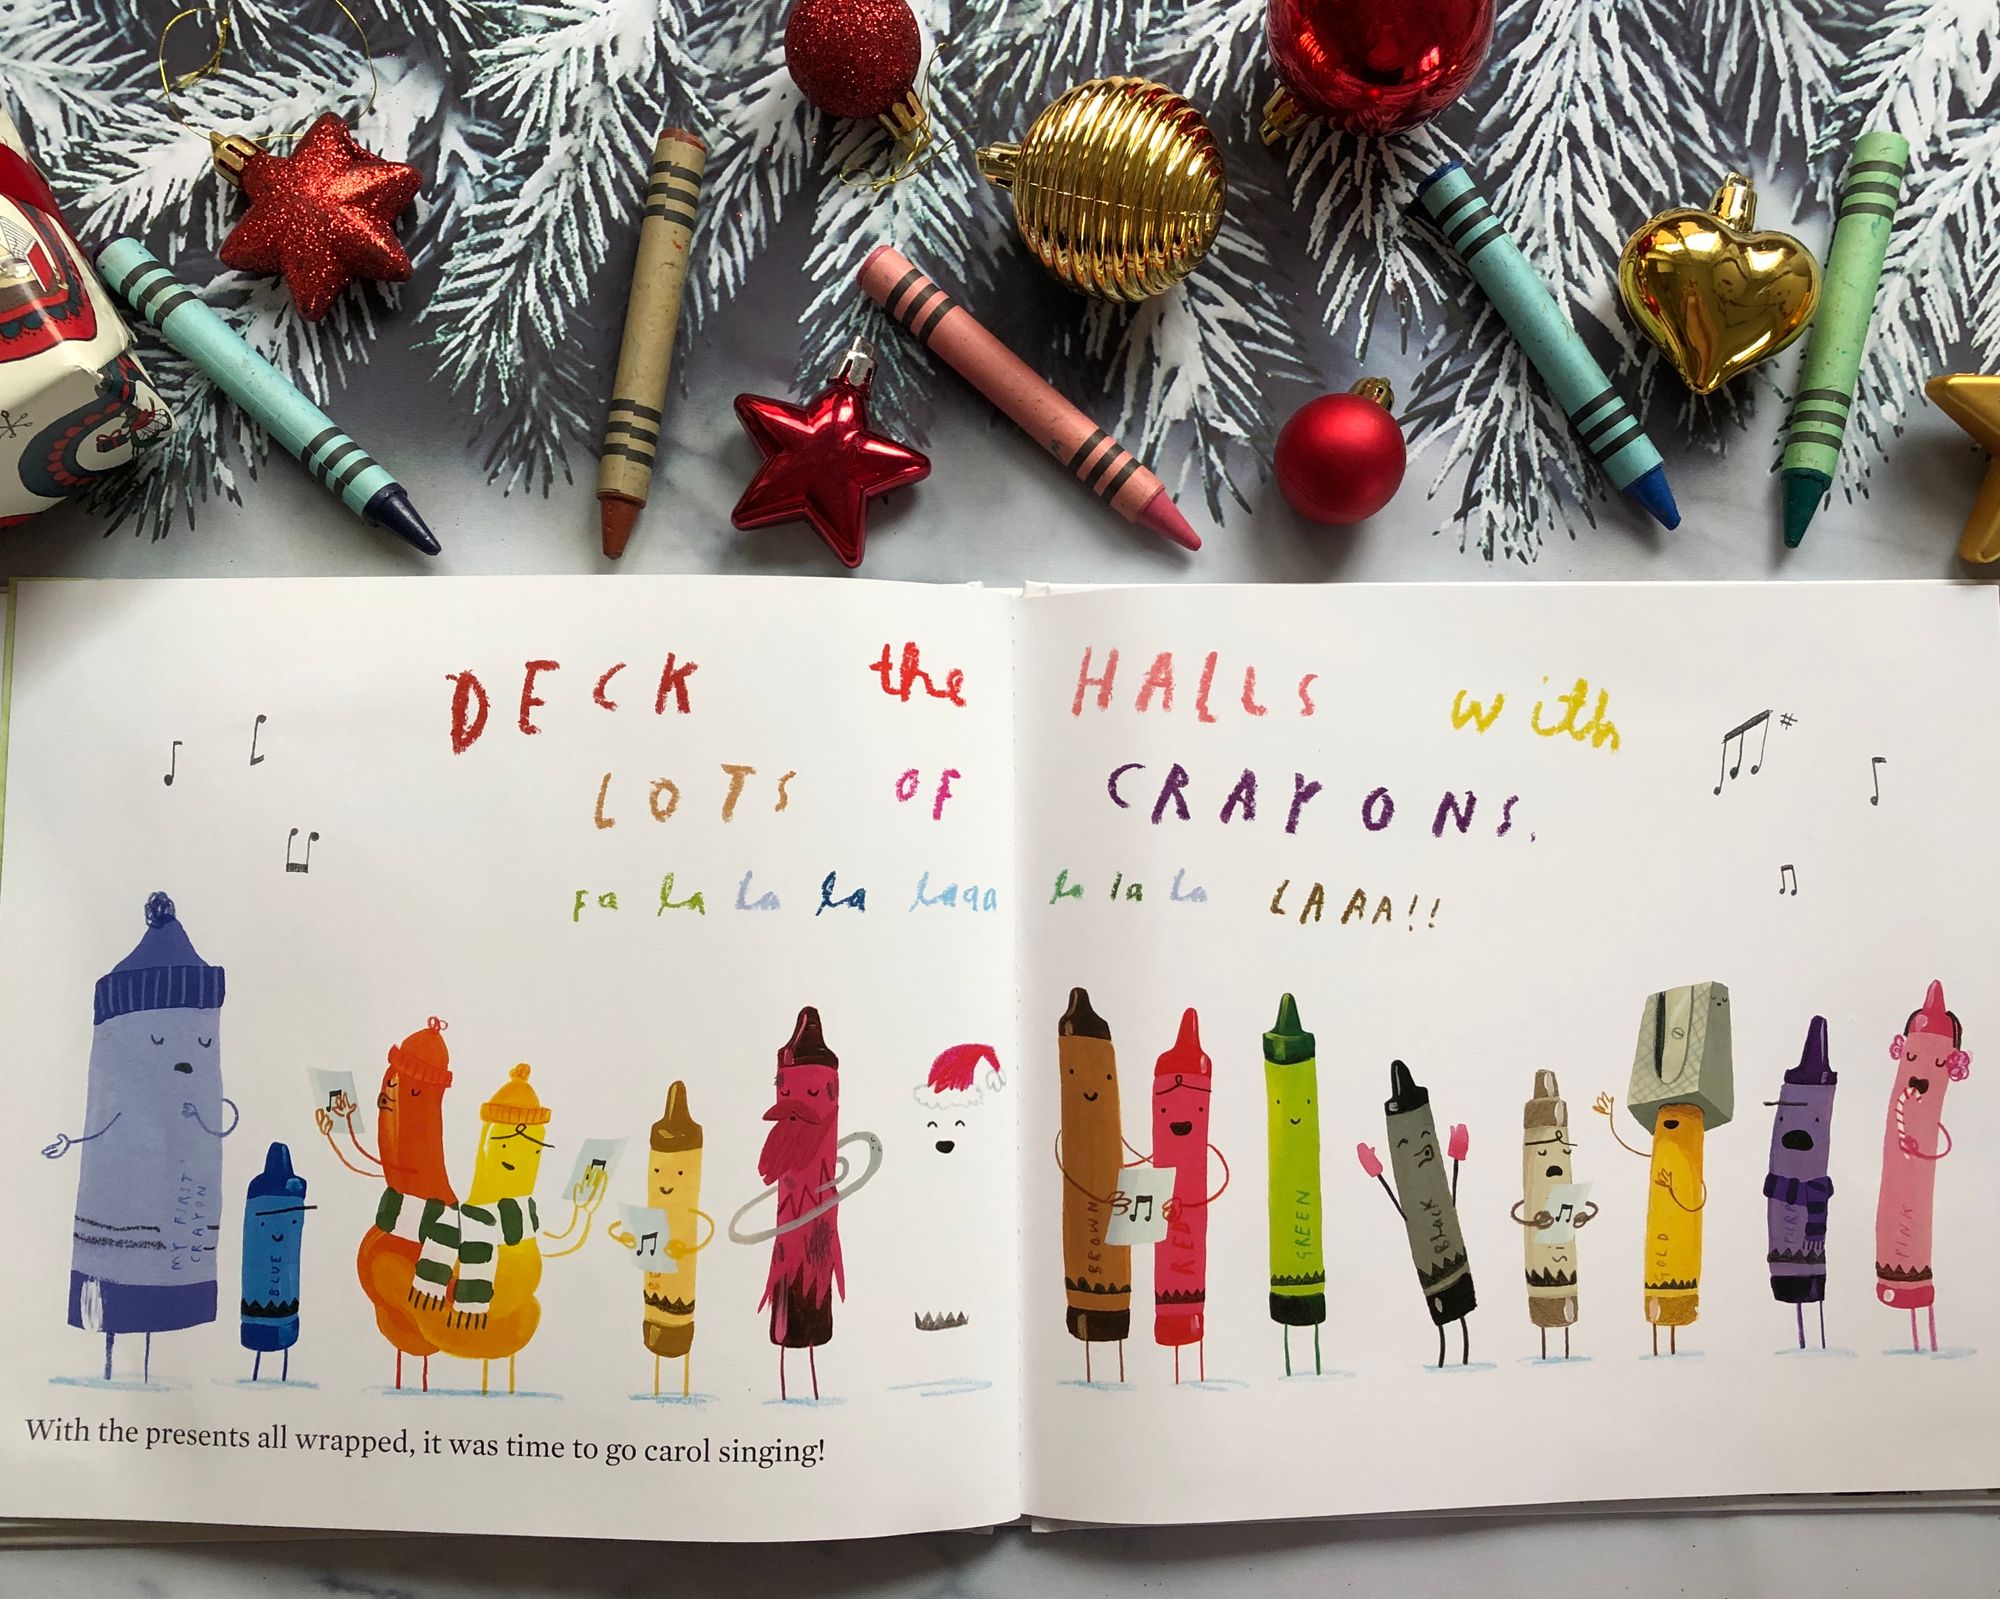 DECK the HALLS with
LOTS OF CRAYONS.
Fa la la la laaa la la la LAAA!!
MY FIRST
CRAYON
BLUE
BROWN
RED
GREEN
BLACK
GOLD
PINK
With the presents all wrapped, it was time to go carol singing!